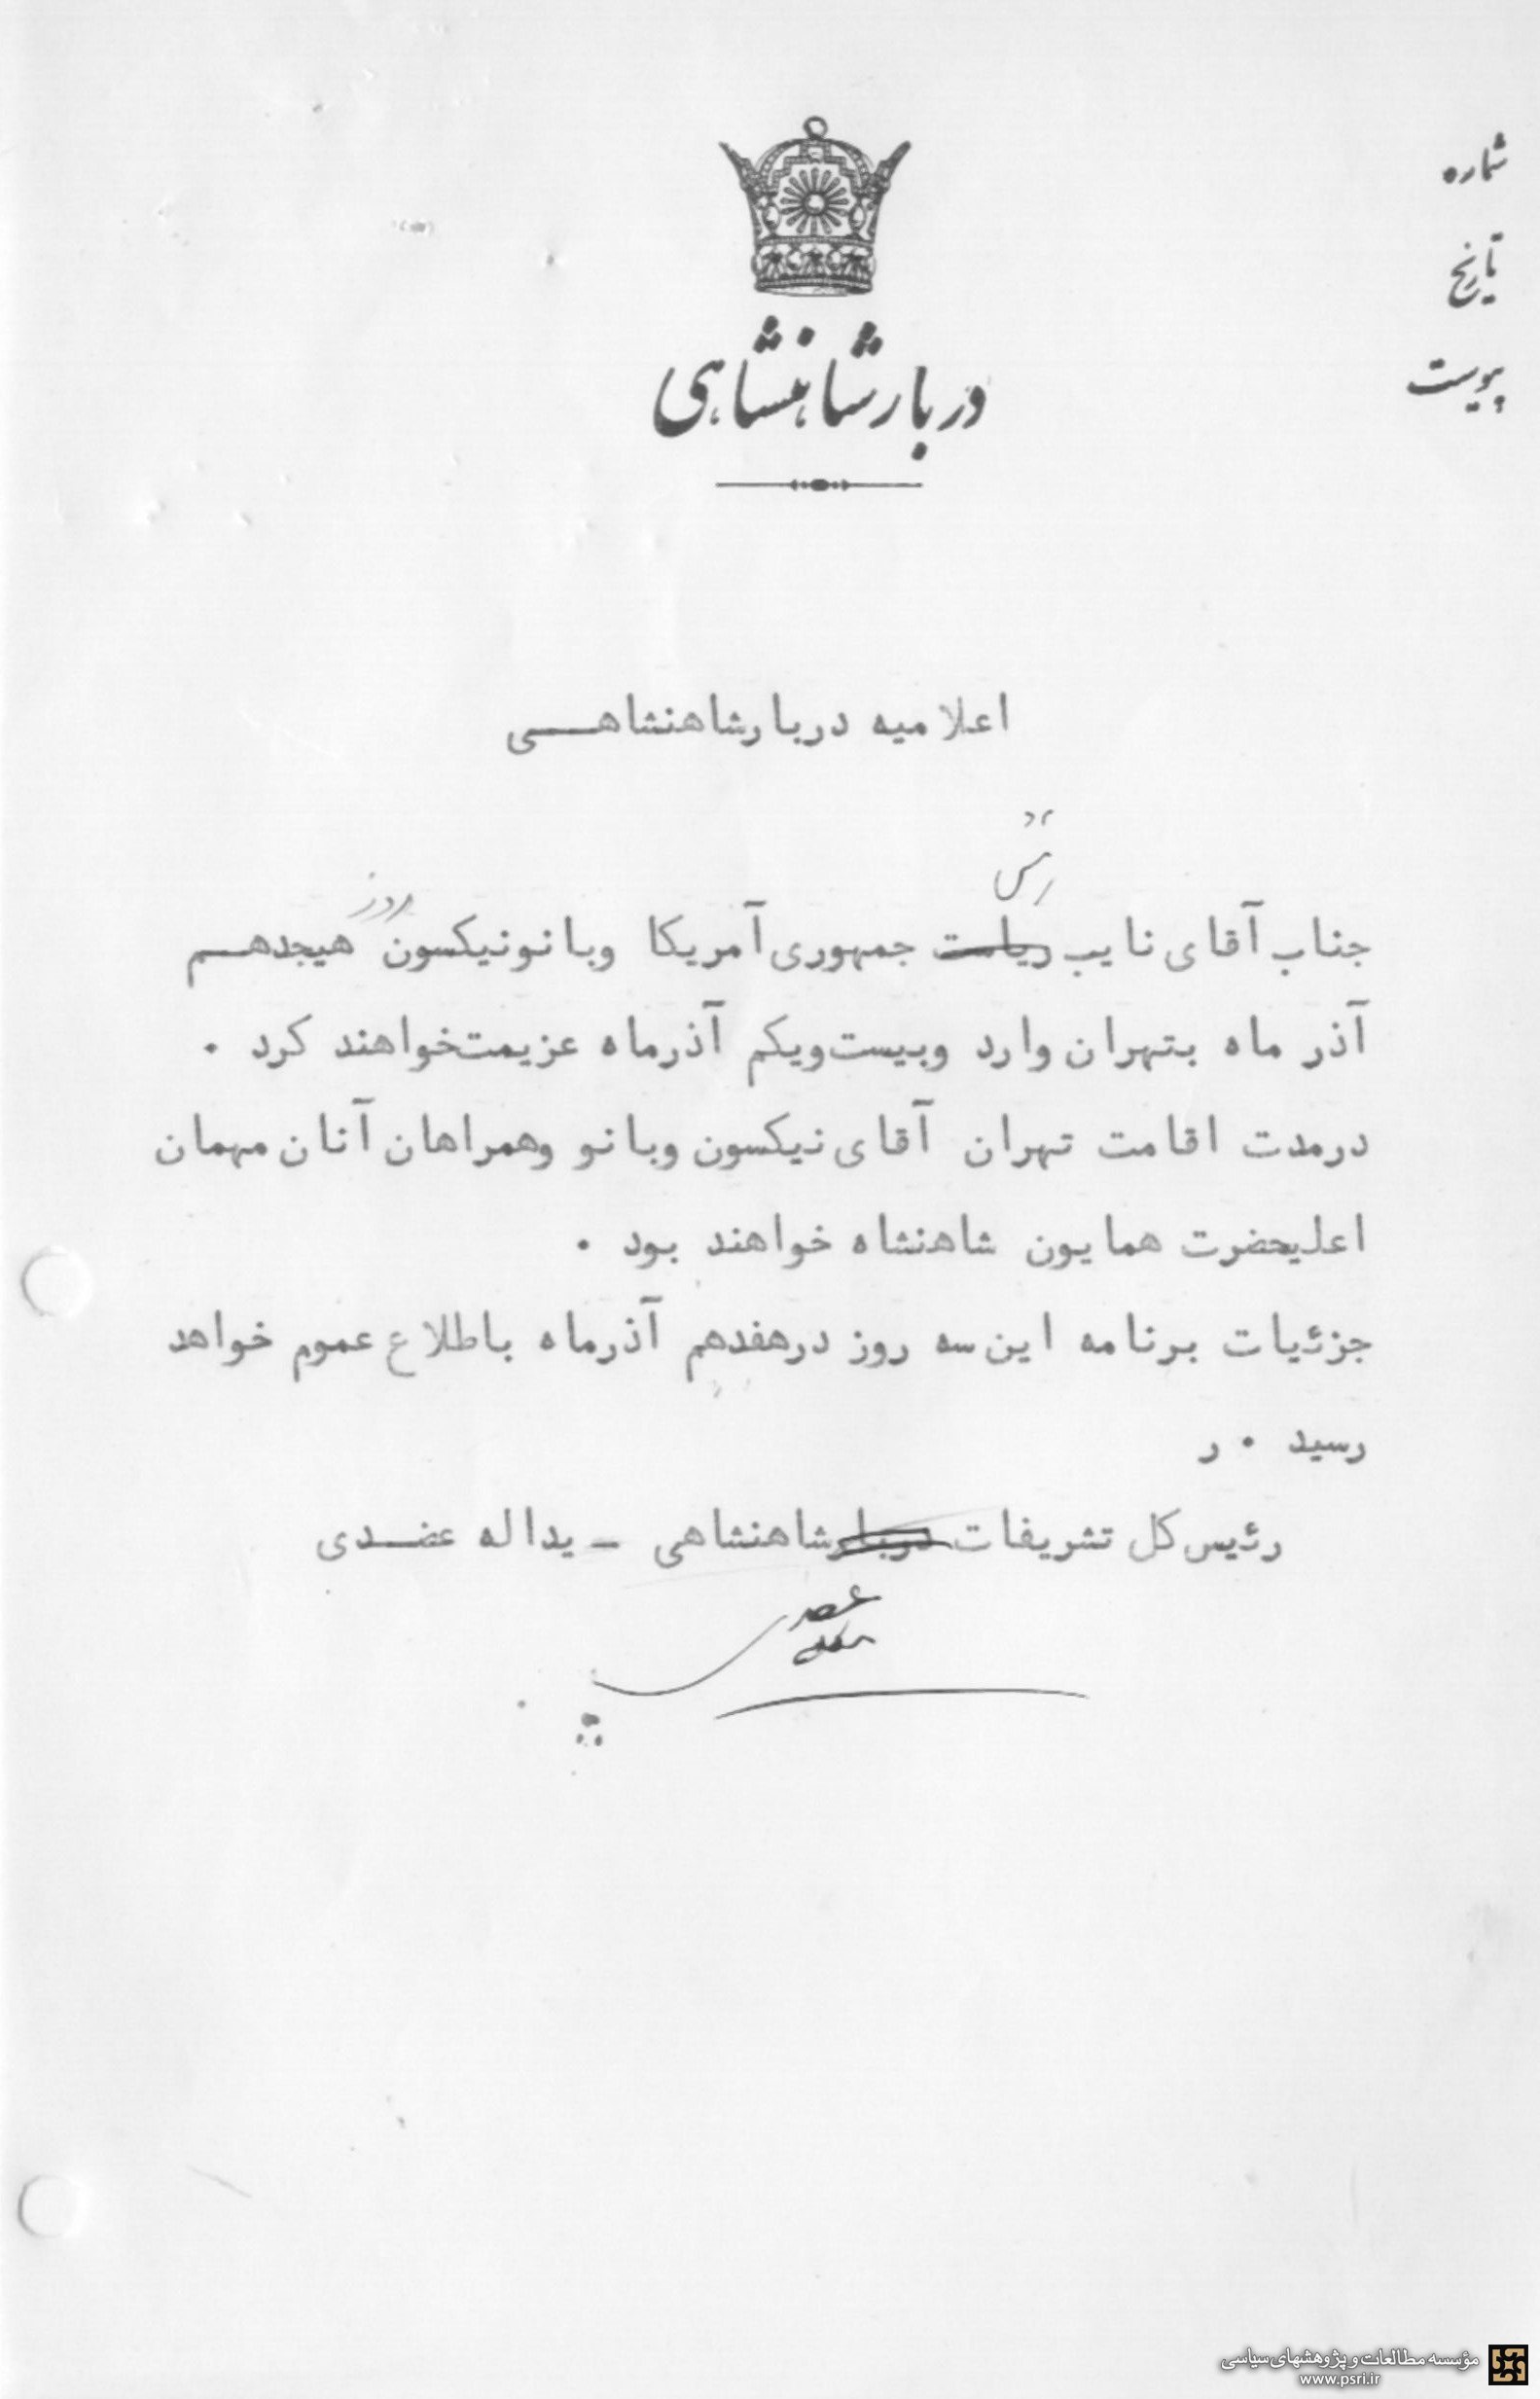 شماره
تاریخ
پیوست
دربار شاهنشاهی
اعلامیه دربار شاهنشاهی
رئیس
روز
جناب آقای نایب ریاست جمهوری آمریکا وبانو نیکسون هیجدهم
آذر ماه بتهران وارد وبیست ویکم آذرماه عزیمت خواهند کرد .
درمدت اقامت تهران آقای نیکسون وبانو وهمراهان آنان مهمان
اعلیحضرت همایون شاهنشاه خواهند بود .
جزئیات برنامه این سه روز درهفدهم آذرماه باطلاع عموم خواهد
رسید . ر
رئیس کل تشریفات دربار شاهنشاهی - یداله عضدی
مؤسسه مطالعات و پژوهشهای سیاسی
www.psri.ir